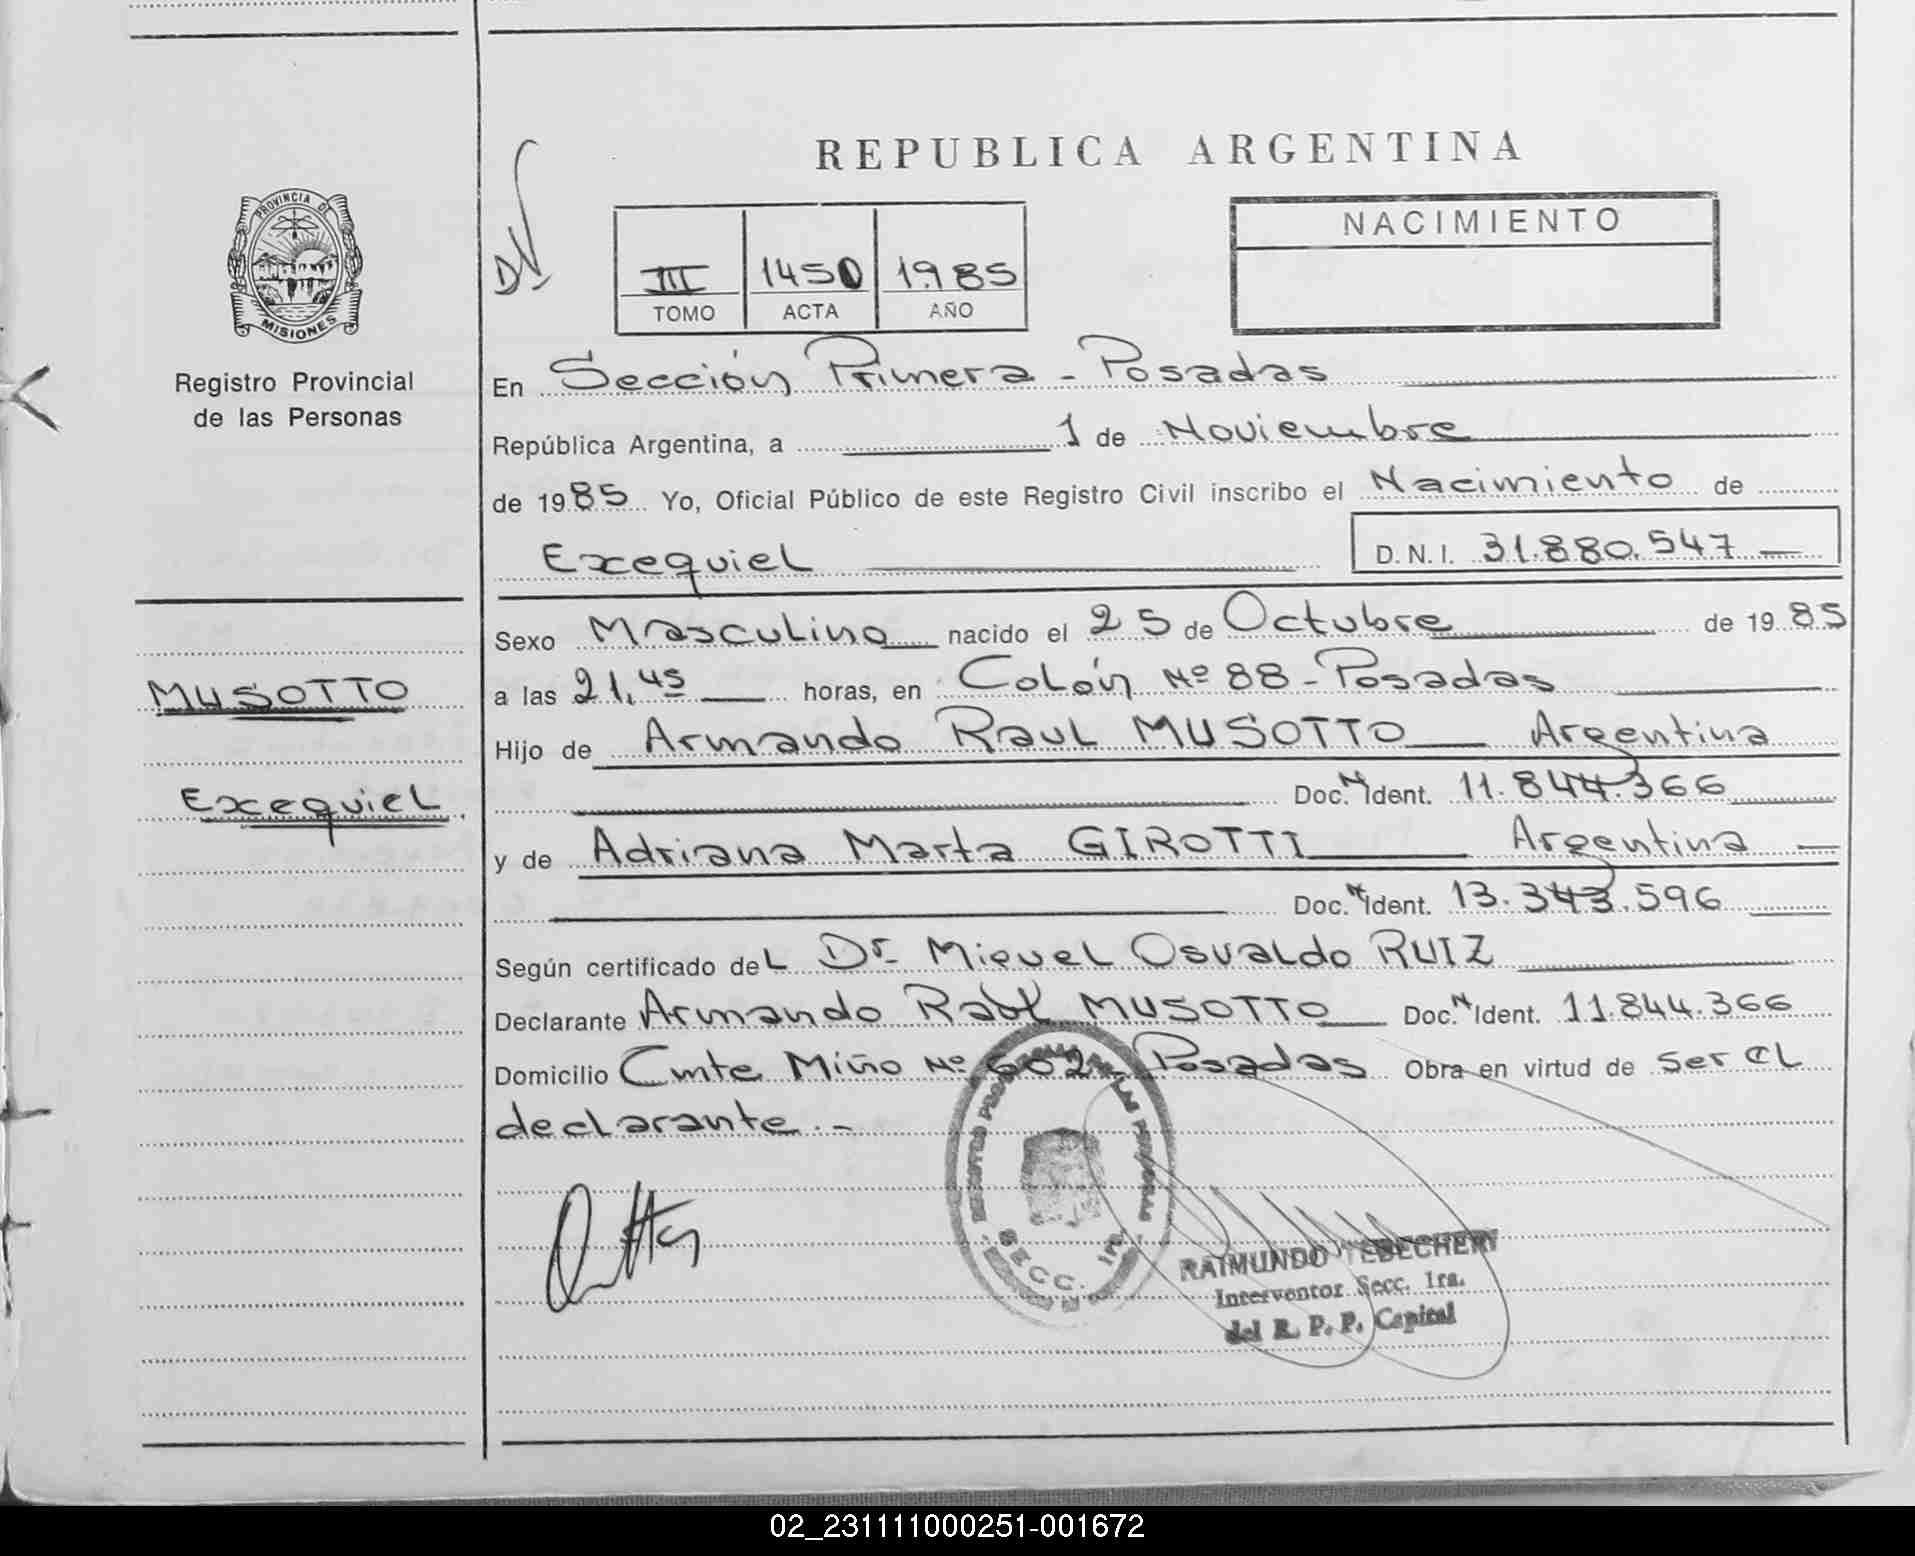 REPUBLICA ARGENTINA
PROVINCIA DE
MISIONES
Registro Provincial
de las Personas
NACIMIENTO
III 1450 1985
TOMO ACTA AÑO
En Sección Primera - Posadas
República Argentina, a 1 de Noviembre
de 1985 Yo, Oficial Público de este Registro Civil inscribo el Nacimiento de
Exequiel D.N.I. 31.880.547
Sexo Masculino nacido el 25 de Octubre de 1985
MUSOTTO
Exequiel
a las 21,45 horas, en Colón Nº 88 - Posadas
Hijo de Armando Raul MUSOTTO Argentina
Doc. N Ident. 11.844.366
y de Adriana Marta GIROTTI Argentina
Doc. N Ident. 13.343.596
Según certificado del Dr. Miguel Osvaldo RUIZ
Declarante Armando Raúl MUSOTTO Doc. N Ident. 11.844.366
Domicilio Cmte Miño Nº 602 - Posadas Obra en virtud de ser el
declarante.-
LAS PERSONAS
SECC. 1ra.
RAIMUNDO TEBECHERY
Interventor Secc. 1ra.
del R. P. P. Capital
02_231111000251-001672